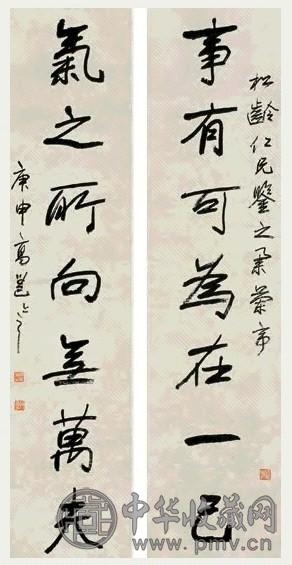 松齡仁兄鑒之集蘭亭
事有可為在一己
氣之所向無萬夫
庚申高邕之
中华收藏网
www.pmv.cn